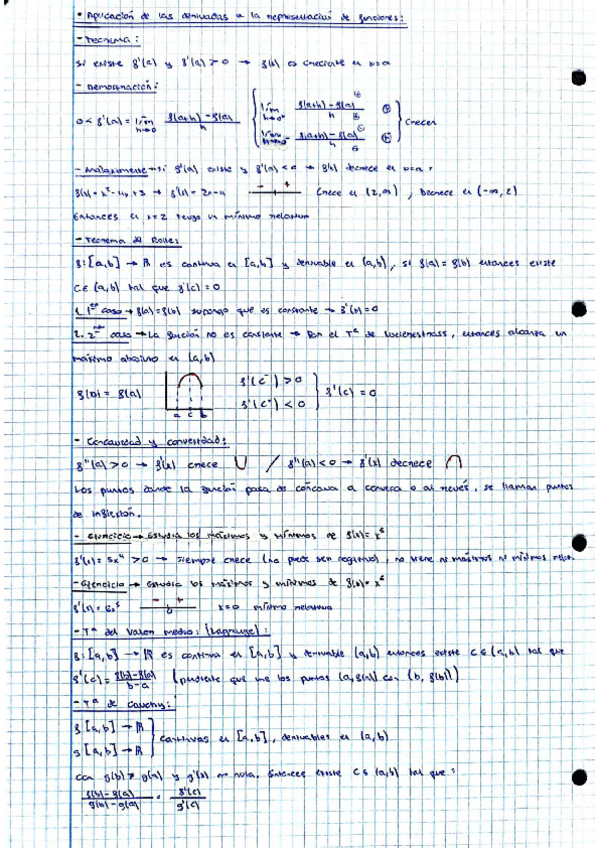 • Aplicación de las derivadas a la representación de funciones:
- Teorema:
Si existe f'(a) y f'(a) > 0 → f(x) es creciente en x=a
- Demostración:
0 < f'(a) = lím h→0 f(a+h) - f(a) / h { lím h→0⁺ f(a+h) - f(a) / h ⊕ } crecer
lím h→0⁻ f(a+h) - f(a) / h ⊕
- Análogamente → Si f'(a) existe y f'(a) < 0 → f(x) decrece en x=a.
f(x) = x² - 4x + 3 → f'(x) = 2x - 4 - + Crece en (2, ∞), Decrece en (-∞, 2)
Entonces en x=2 tengo un mínimo relativo
- Teorema de Rolle:
f: [a,b] → ℝ es continua en [a,b] y derivable en (a,b), si f(a) = f(b) entonces existe
c ∈ (a,b) tal que f'(c) = 0
1. 1er caso → f(a) = f(b) supongo que es constante → f'(x) = 0
2. 2º caso → La función no es constante → Por el Tª de Weierstrass, entonces alcanza un
máximo absoluto en (a,b)
f(b) = f(a) a c b f'(c⁻) > 0
f'(c⁺) < 0 } f'(c) = 0
- Concavidad y convexidad:
f''(a) > 0 → f'(x) crece ∪ / f''(a) < 0 → f'(x) decrece ∩
Los puntos donde la función pasa de cóncava a convexa o al revés, se llaman puntos
de inflexión.
- Ejercicio → Estudia los máximos y mínimos de f(x) =
f'(x) = 5x⁴ > 0 → siempre crece (no puede ser negativo), no tiene ni máximos ni mínimos relat.
- Ejercicio → Estudia los máximos y mínimos de f(x) = x⁶
f'(x) = 6x⁵ - 0 + x=0 mínimo relativo
- Tª del Valor medio: (Lagrange):
f: [a,b] → ℝ es continua en [a,b] y derivable (a,b) entonces existe c ∈ (a,b) tal que
f'(c) = f(b) - f(a) / b - a (pendiente que une los puntos (a, f(a)) con (b, f(b)))
- Tª de Cauchy:
f [a,b] → ℝ
g [a,b] → ℝ } continuas en [a,b], derivables en (a,b)
con g(b) ≠ g(a) y g'(x) no nula. Entonces existe c ∈ (a,b) tal que:
f(b) - f(a) / g(b) - g(a) = f'(c) / g'(c)